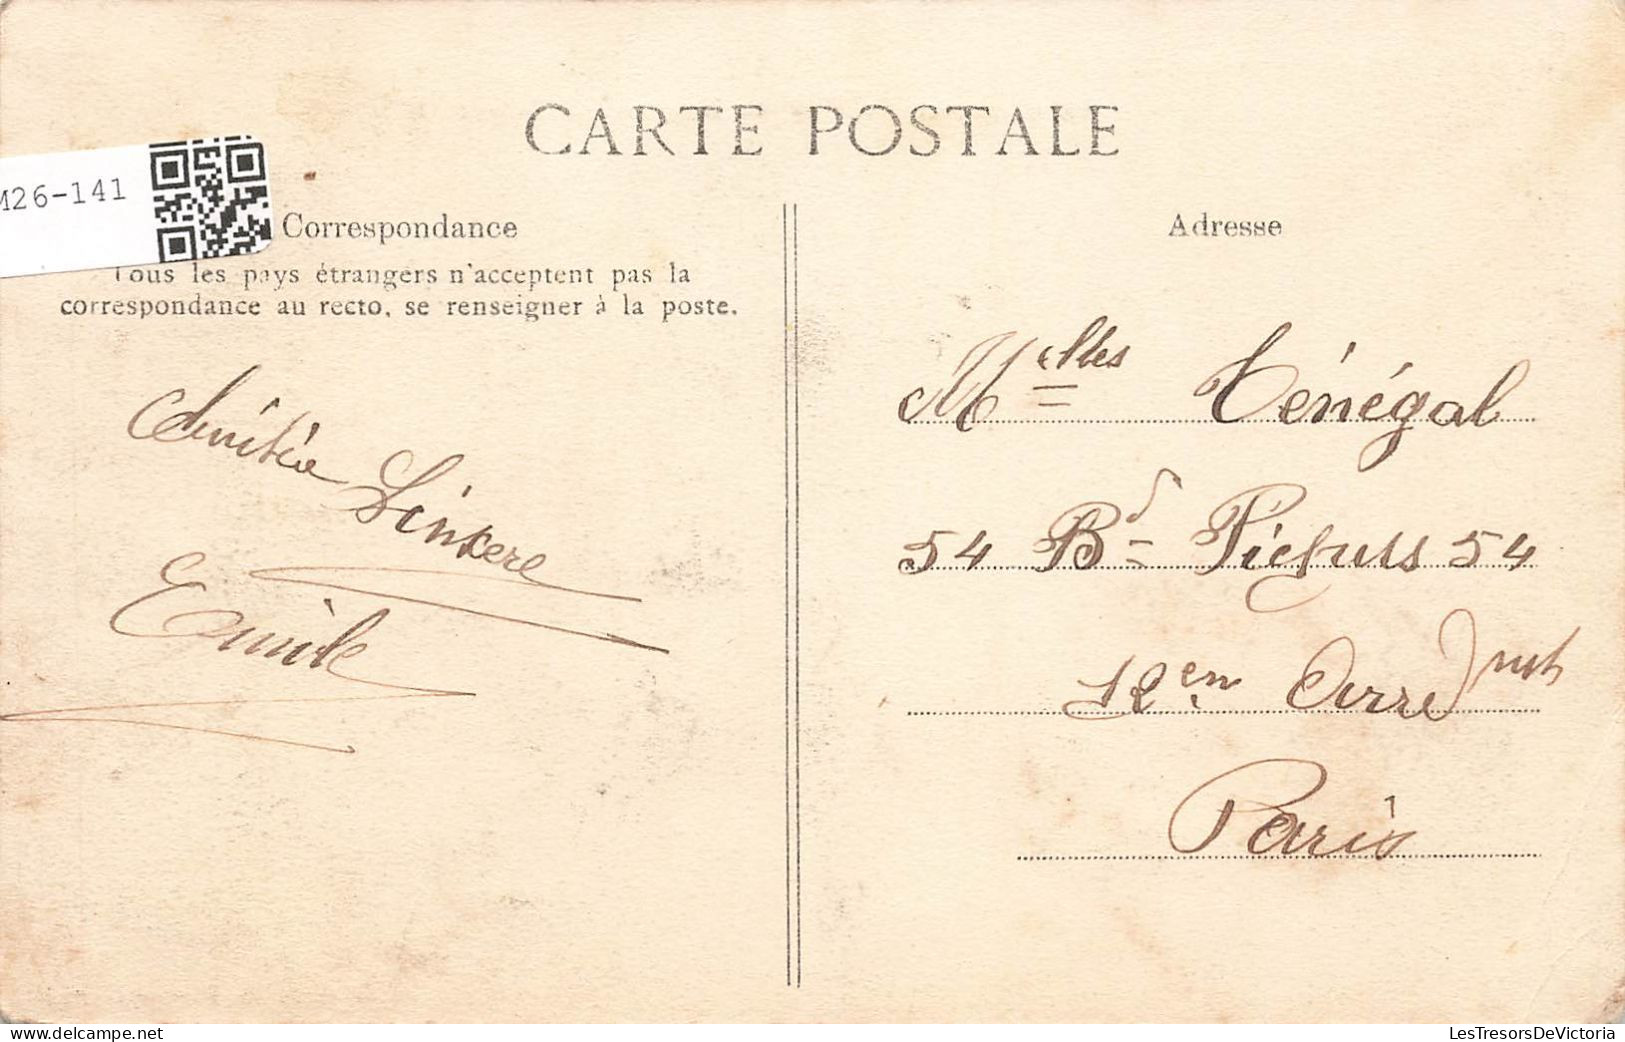 CARTE POSTALE
M26-141
Correspondance
Tous les pays étrangers n'acceptent pas la
correspondance au recto, se renseigner à la poste.
Amitié Sincere
Emile
Adresse
Melles Ténégal
54 Bd Picpuss 54
12en Arrredmt
Paris
LesTresorsDeVictoria